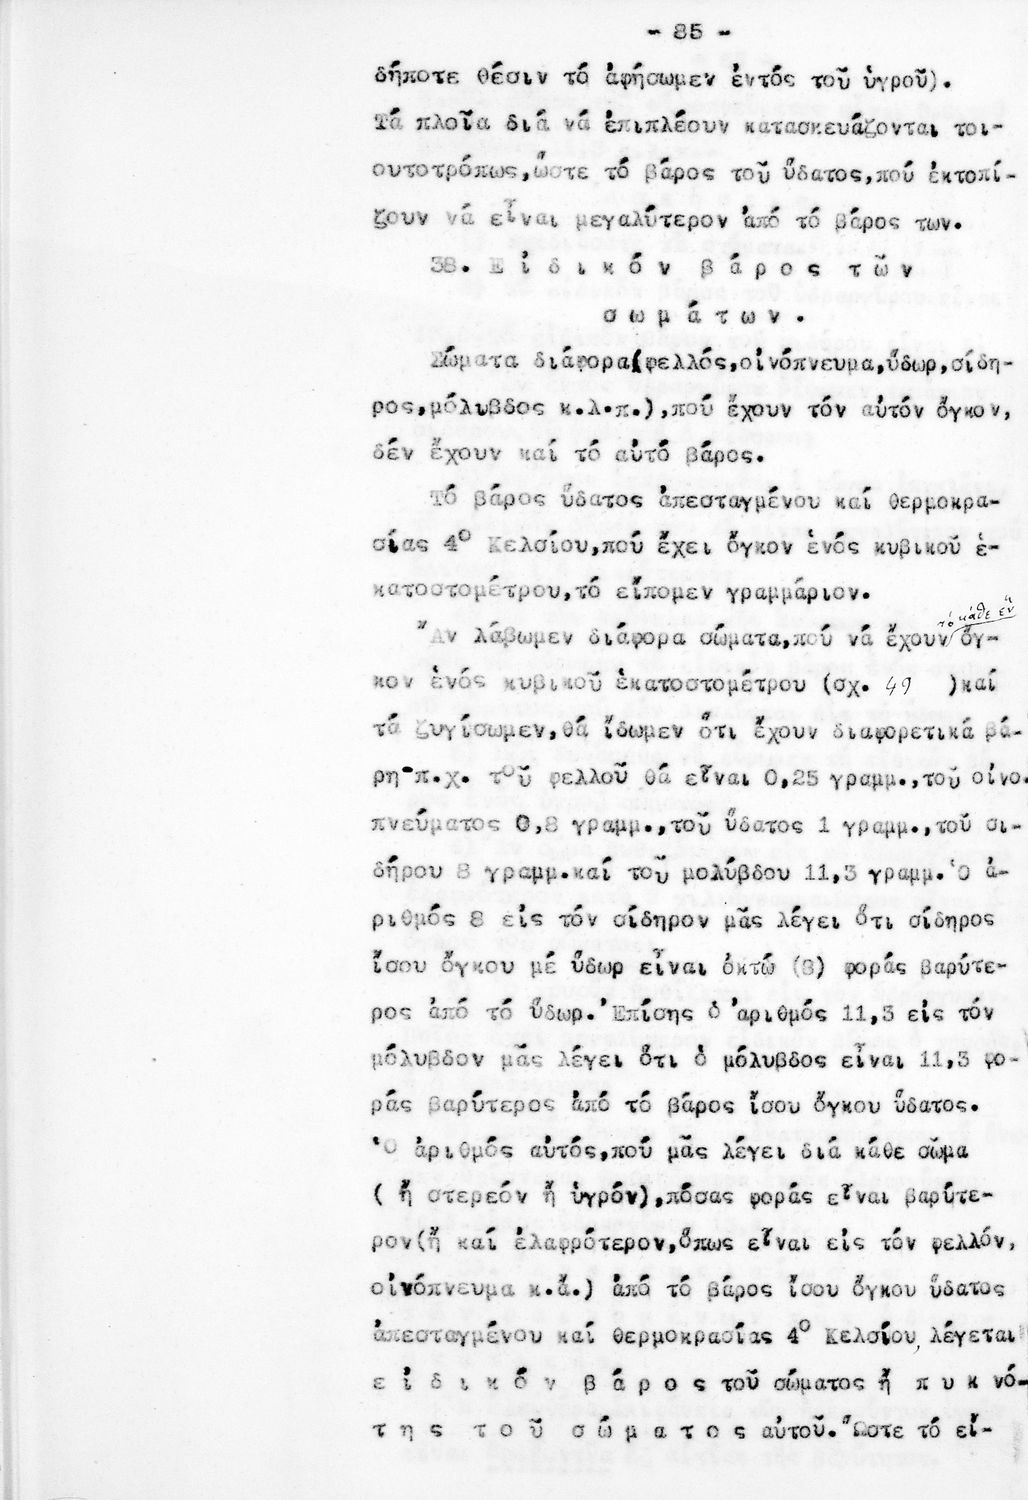 - 85 -
δήποτε θέσιν τό ἀφήσωμεν ἐντός τοῦ ὑγροῦ).
Τά πλοῖα διά νά ἐπιπλέουν κατασκευάζονται τοι-
ουτοτρόπως,ὥστε τό βάρος τοῦ ὕδατος,πού ἐκτοπί-
ζουν νά εἶναι μεγαλύτερον ἀπό τό βάρος των.
38. Ε ἰ δ ι κ ό ν  β ά ρ ο ς  τ ῶ ν
σ ω μ ά τ ω ν .
Σώματα διάφορα(φελλός,οἰνόπνευμα,ὕδωρ,σίδη-
ρος,μόλυβδος κ.λ.π.),πού ἔχουν τόν αὐτόν ὄγκον,
δέν ἔχουν καί τό αὐτό βάρος.
Τό βάρος ὕδατος ἀπεσταγμένου καί θερμοκρα-
σίας 4ο Κελσίου,πού ἔχει ὄγκον ἑνός κυβικοῦ ἑ-
κατοστομέτρου,τό εἴπομεν γραμμάριον.
τό κάθε ἕν
Ἄν λάβωμεν διάφορα σώματα,πού νά ἔχουν ὄγ-
κον ἑνός κυβικοῦ ἑκατοστομέτρου (σχ. 49 )καί
τά ζυγίσωμεν,θά ἴδωμεν ὅτι ἔχουν διαφορετικά βά-
ρη-π.χ. τοῦ φελλοῦ θά εἶναι 0,25 γραμμ.,τοῦ οἰνο-
πνεύματος 0,8 γραμμ.,τοῦ ὕδατος 1 γραμμ.,τοῦ σι-
δήρου 8 γραμμ.καί τοῦ μολύβδου 11,3 γραμμ.Ὁ ἀ-
ριθμός 8 εἰς τόν σίδηρον μᾶς λέγει ὅτι σίδηρος
ἴσου ὄγκου μέ ὕδωρ εἶναι ὀκτώ (8) φοράς βαρύτε-
ρος ἀπό τό ὕδωρ.Ἐπίσης ὁ ἀριθμός 11,3 εἰς τόν
μόλυβδον μᾶς λέγει ὅτι ὁ μόλυβδος εἶναι 11,3 φο-
ράς βαρύτερος ἀπό τό βάρος ἴσου ὄγκου ὕδατος.
Ὁ ἀριθμός αὐτός,πού μᾶς λέγει διά κάθε σῶμα
( ἤ στερεόν ἤ ὑγρόν),πόσας φοράς εἶναι βαρύτε-
ρον(ἤ καί ἐλαφρότερον,ὅπως εἶναι εἰς τόν φελλόν,
οἰνόπνευμα κ.ἄ.) ἀπό τό βάρος ἴσου ὄγκου ὕδατος
ἀπεσταγμένου καί θερμοκρασίας 4ο Κελσίου, λέγεται
ε ἰ δ ι κ ό ν  β ά ρ ο ς τοῦ σώματος ἤ  π υ κ νό-
τ η ς  τ ο ῦ  σ ώ μ α τ ο ς αὐτοῦ.Ὥστε τό εἰ-